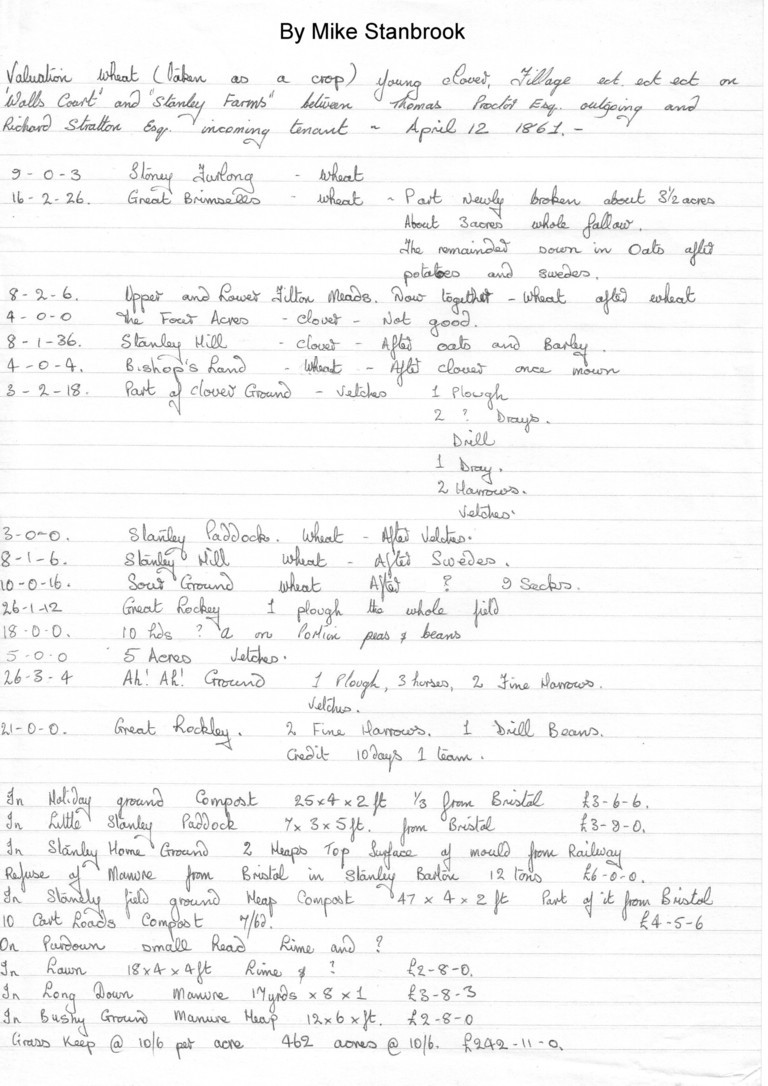 By Mike Stanbrook
Valuation wheat (taken as a crop) young clover, Tillage ect. ect ect on
'Walls Court' and "Stanley Farms" between Thomas Proctor Esq. outgoing and
Richard Stratton Esq. incoming tenant - April 12 1861.-
9-0-3 Stoney Furlong - wheat
16-2-26. Great Brimsells - wheat - Part Newly broken about 3½ acres
About 3 acres whole fallow.
The remainder sown in Oats after
potatoes and swedes.
8-2-6. Upper and Lower Filton Meads. Now together - Wheat after wheat
4-0-0 The Four Acres - clover - Not good.
8-1-36. Stanley Hill - clover - After oats and Barley.
4-0-4. Bishop's Land - wheat - After clover once mown
3-2-18. Part of clover Ground - vetches 1 Plough
2 ? Drays.
Drill
1 Dray.
2 Harrows.
Vetches.
3-0-0. Stanley Paddock. Wheat - After Vetches.
8-1-6. Stanley Hill wheat - After Swedes.
10-0-16. Sour Ground wheat After ? 9 Sacks.
26-1-12 Great Rockey 1 plough the whole field
18-0-0. 10 hds ? a on Portion peas & beans
5-0-0 5 Acres Vetches.
26-3-4 Ah! Ah! Ground 1 Plough, 3 horses, 2 Fine Harrows.
Vetches.
21-0-0. Great Rockley. 2 Fine Harrows. 1 Drill Beans.
Credit 10 days 1 team.
In Holiday ground Compost 25x4x2 ft ⅓ from Bristol £3-6-6.
In Little Stanley Paddock 7x3x5 ft. from Bristol £3-9-0.
In Stanley Home Ground 2 Heaps Top Surface of mould from Railway
Refuse of Manure from Bristol in Stanley Barton 12 tons £6-0-0.
In Stanely field ground Heap Compost 47 x 4 x 2 ft Part of it from Bristol
10 Cart Loads Compost 7/6d. £4-5-6
On Purdown small Read Lime and ?
In Lawn 18x4x4ft Lime & ? £2-8-0.
In Long Down Manure 17yrds x 8 x 1 £3-8-3
In Bushy Ground Manure Heap 12x6 x ft. £2-8-0
Grass Keep @ 10/6 per acre 462 acres @ 10/6. £242-11-0.